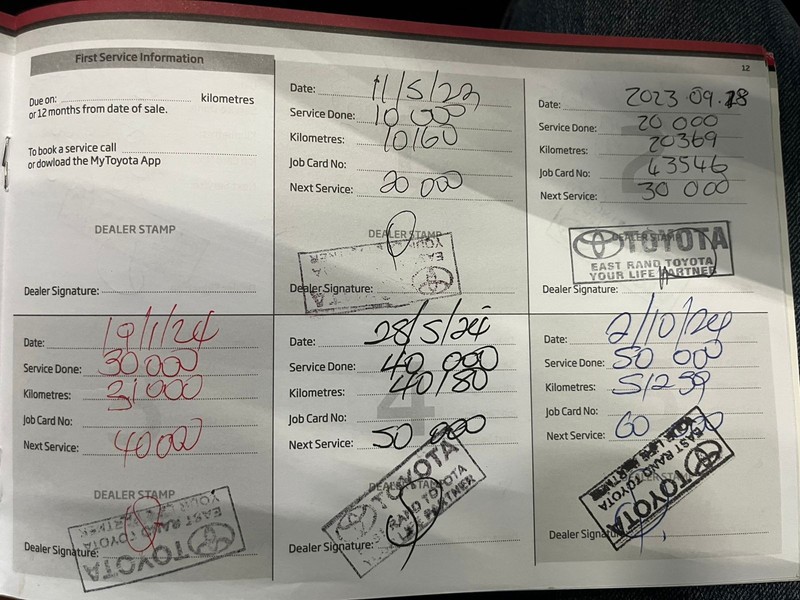 12
First Service Information
Due on: kilometres
or 12 months from date of sale.
To book a service call
or dowload the MyToyota App
DEALER STAMP
Dealer Signature:
Date: 11/5/23
Service Done: 10 000
Kilometres: 10160
Job Card No:
Next Service: 20 000
DEALER STAMP
Dealer Signature:
Date: 2023 09.28
Service Done: 20 000
Kilometres: 20369
Job Card No: 43546
Next Service: 30 000
TOYOTA
EAST RAND TOYOTA
YOUR LIFE PARTNER
Dealer Signature:
Date: 19/1/24
Service Done: 30 000
Kilometres: 31000
Job Card No:
Next Service: 40 000
DEALER STAMP
TOYOTA
EAST RAND TOYOTA
YOUR LIFE PARTNER
Dealer Signature:
Date: 28/5/24
Service Done: 40 000
Kilometres: 40180
Job Card No:
Next Service: 50 000
DEALER STAMP
TOYOTA
RAND TOYOTA
LIFE PARTNER
Dealer Signature:
Date: 2/10/24
Service Done: 50 000
Kilometres: 51239
Job Card No:
Next Service: 60 000
TOYOTA
EAST RAND TOYOTA
YOUR LIFE PARTNER
Dealer Signature: